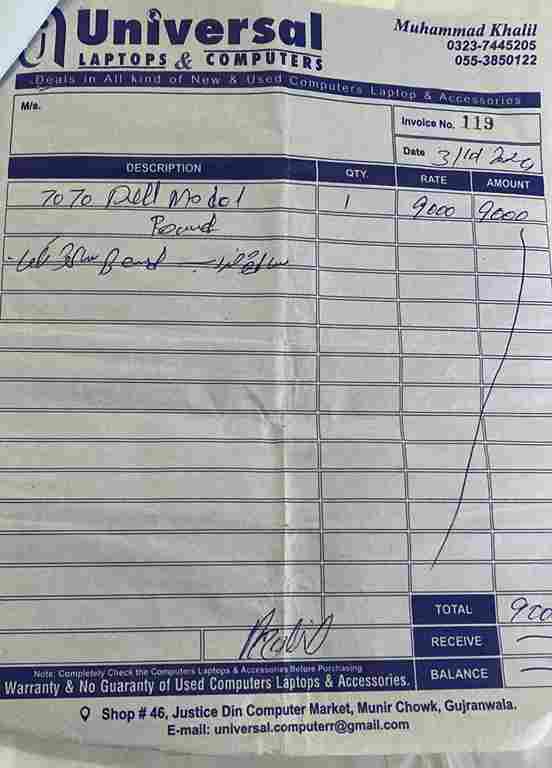 Universal
LAPTOPS & COMPUTERS
Muhammad Khalil
0323-7445205
055-3850122
Deals in All kind of New & Used Computers Laptop & Accessories
M/s.
Invoice No. 119
Date 3/10/2024
DESCRIPTION QTY. RATE AMOUNT
7070 Dell Model 1 9000 9000
Board
Board
TOTAL 900
RECEIVE
BALANCE
Khalil
Note: Completely Check the Computers Laptops & Accessories Before Purchasing
Warranty & No Guaranty of Used Computers Laptops & Accessories.
Shop # 46, Justice Din Computer Market, Munir Chowk, Gujranwala.
E-mail: universal.computerr@gmail.com